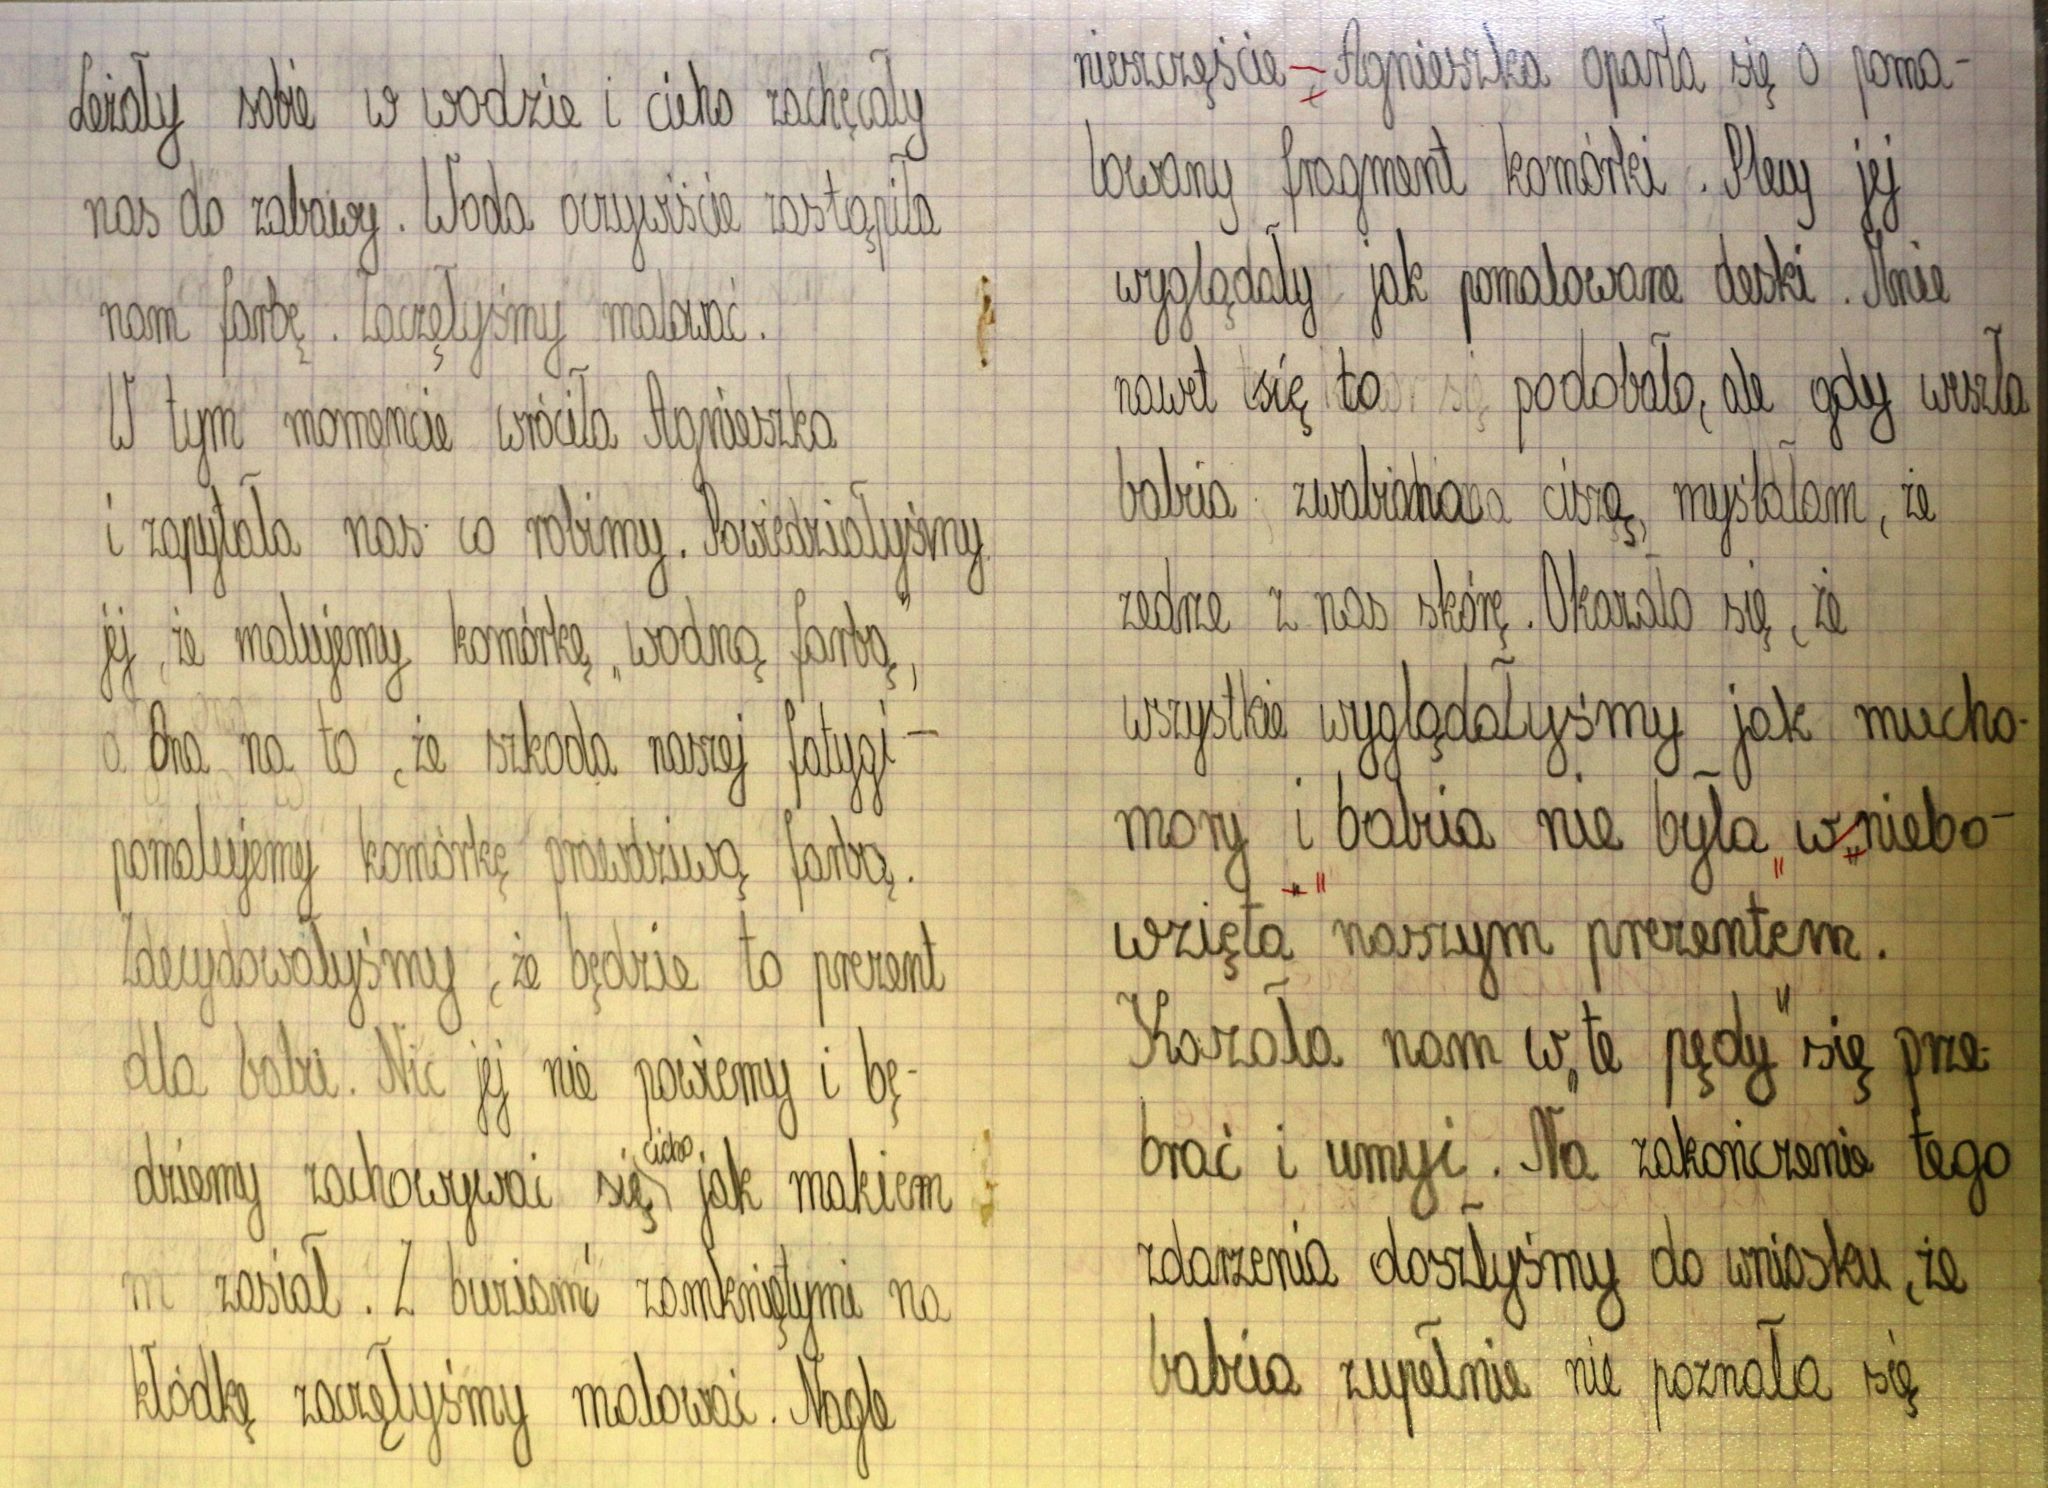 Leżały sobie w wodzie i cicho zachęcały
nas do zabawy. Woda oczywiście zastąpiła
nam farbę. Zaczęłyśmy malować.
W tym momencie wróciła Agnieszka
i zapytała nas co robimy. Powiedziałyśmy
jej, że malujemy komórkę „wodną farbą",
Ona na to, że szkoda naszej fatygi –
pomalujemy komórkę prawdziwą farbą.
Zdecydowałyśmy, że będzie to prezent
dla babci. Nic jej nie powiemy i bę-
dziemy zachowywać się cicho jak makiem
zasiał. Z buziami zamkniętymi na
kłódkę zaczęłyśmy malować. Nagle
nieszczęście – Agnieszka oparła się o poma-
lowany fragment komórki. Plecy jej
wyglądały jak pomalowane deski. Mnie
nawet się to podobało, ale gdy weszła
babcia zwabiona ciszą, myślałam, że
zedrze z nas skórę. Okazało się, że
wszystkie wyglądałyśmy jak mucho-
mory i babcia nie była „w niebo-
wzięta" naszym prezentem.
Kazała nam w „te pędy" się prze-
brać i umyć. Na zakończenie tego
zdarzenia doszłyśmy do wniosku, że
babcia zupełnie nie poznała się